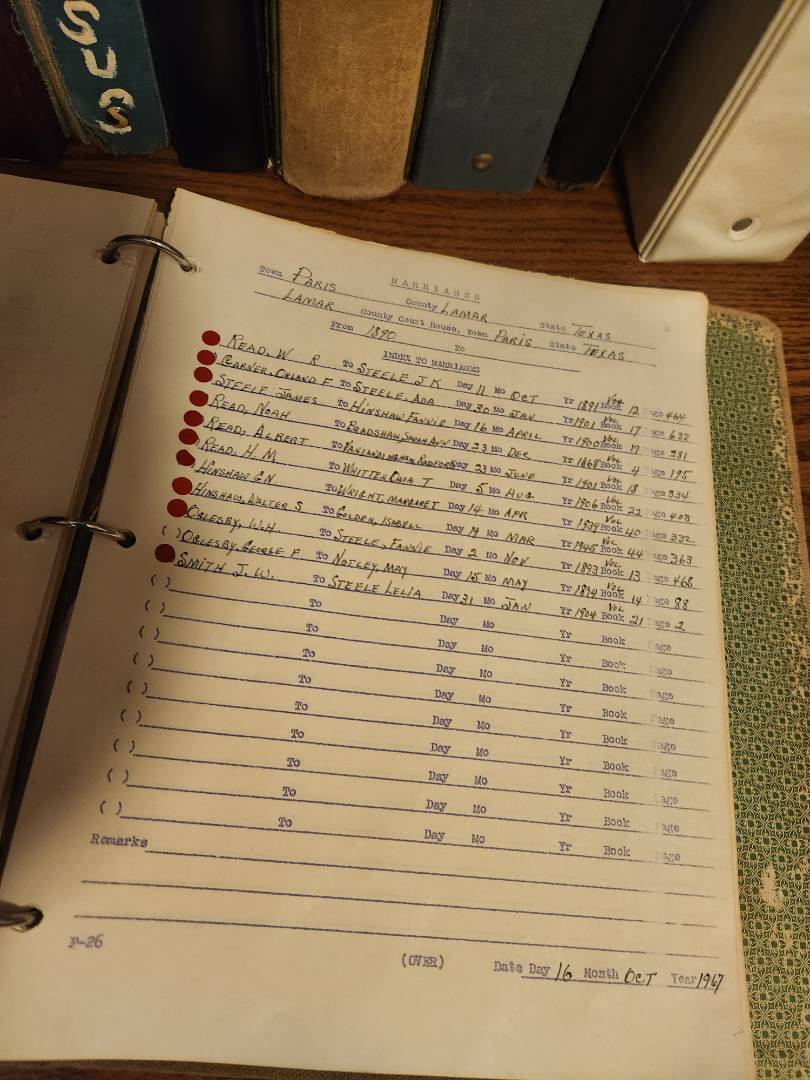 SUS
MARRIAGES
Town PARIS County LAMAR State TEXAS
LAMAR County Court House, Town PARIS State TEXAS
From 1890 To
INDEX TO MARRIAGES
READ, W R To STEELE J.K Day 11 Mo OCT Yr 1891 Vol Book 12 Page 464
GARNER, ORLAND F To STEELE, ADA Day 30 Mo JAN Yr 1901 Book 17 Page 632
STEELE JAMES To HINSHAW FANNIE Day 16 Mo APRIL Yr 1900 Vol Book 17 Page 281
READ, NOAH To BRADSHAW, SARAH ANN Day 23 Mo DEC Yr 1868 Book 4 Page 195
READ, ALBERT To Day 23 Mo JUNE Yr 1901 Vol Book 18 Page 334
READ, H. M To WHITTEN T Day 5 Mo AUG Yr 1906 Book 22 Page 408
HINSHAW G.N To WRIGHT, MARGARET Day 14 Mo APR Yr 1939 Vol Book 40 Page 332
HINSHAW, WALTER S To GOLDEN, ISABELL Day 19 Mo MAR Yr 1945 Book 44 Page 363
OGLESBY, W.H To STEELE, FANNIE Day 2 Mo NOV Yr 1893 Vol Book 13 Page 468
( ) OGLESBY, GEORGE F To NOTLEY, MAY Day 15 Mo MAY Yr 1894 Book 14 Page 88
SMITH J.W. To STEELE LELIA Day 31 Mo JAN Yr 1904 Vol Book 21 Page 2
( ) To Day Mo Yr Book Page
( ) To Day Mo Yr Book Page
( ) To Day Mo Yr Book Page
( ) To Day Mo Yr Book Page
( ) To Day Mo Yr Book Page
( ) To Day Mo Yr Book Page
( ) To Day Mo Yr Book Page
( ) To Day Mo Yr Book Page
( ) To Day Mo Yr Book Page
Remarks
F-26 (OVER) Date Day 16 Month OCT Year 1967